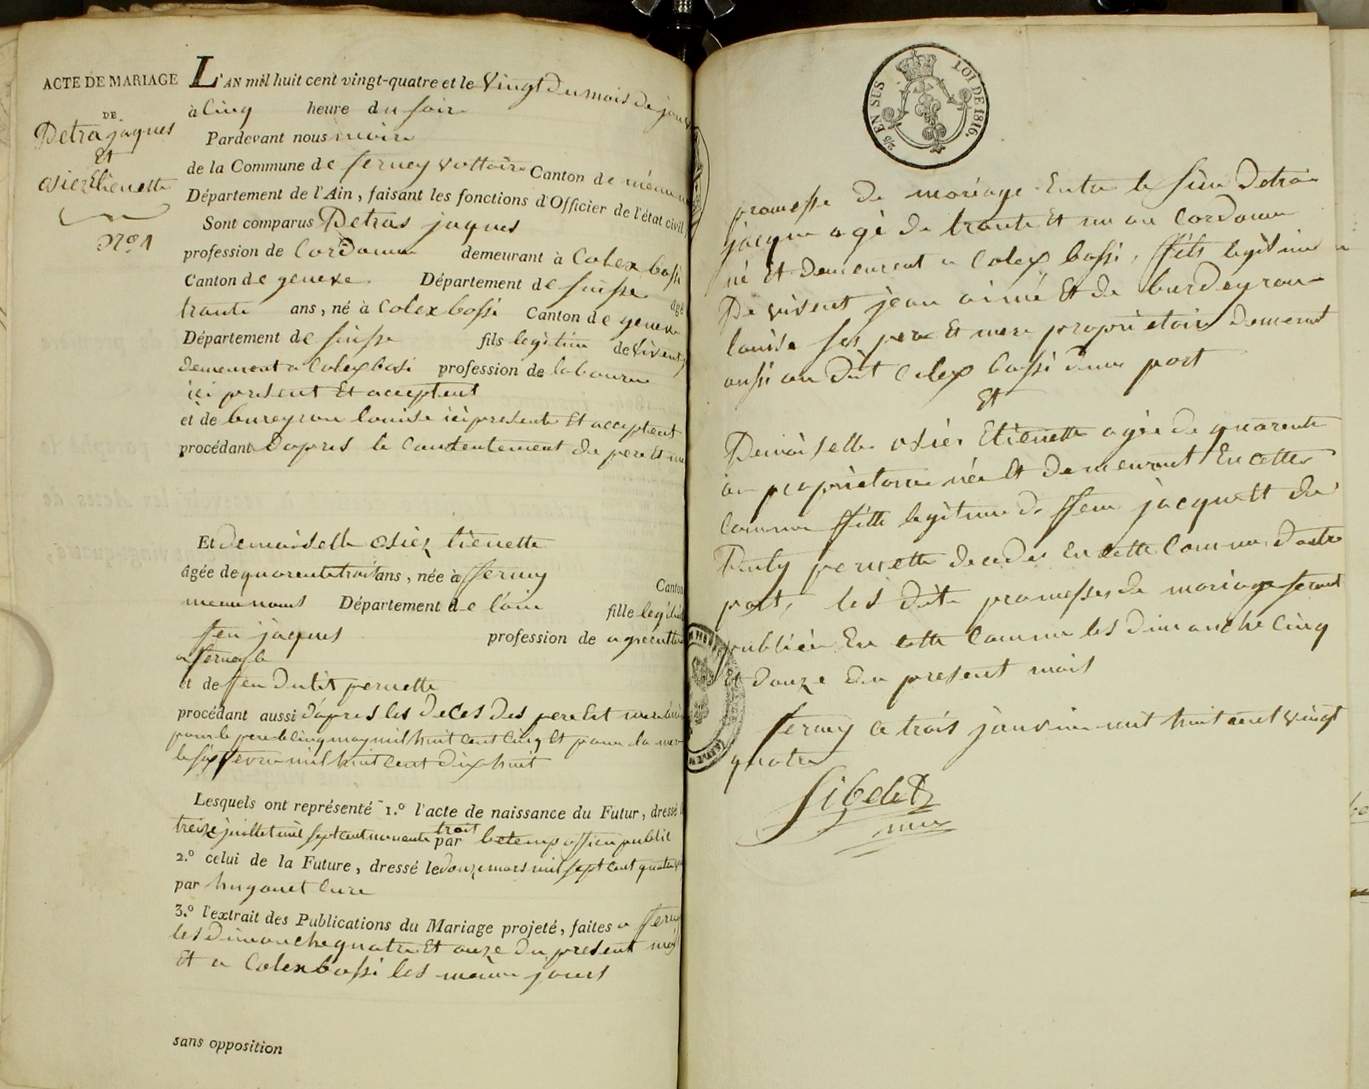 ACTE DE MARIAGE
DE
Detra jaques
Et
osiez Etienette
N.º 1
L'AN mil huit cent vingt-quatre et le Vingt Du mois De janv
à Cinq heure du soir
Pardevant nous maire
de la Commune de ferney Voltaire Canton de même
Département de l'Ain, faisant les fonctions d'Officier de l'état civil
Sont comparus Detras jaques
profession de Cordonn demeurant à Colex bossi
Canton de geneve Département de suisse âgé
trante ans, né à Colex bossi Canton de geneve
Département de suisse fils legitim de Vivent j
demeurent a Colex bosi profession de laboureur
ici present Et acceptent
et de bureyron louise ici presente Et acceptent
procédant Dapres le Contentement de pere Et m
Et demaiselle osiez tienette
âgée de quarente trois ans, née à fferney Canton
meme nons Département de l'ain fille legit
feu jaques profession de agricult
a ferney
et de ffeu Dutit pernette
procédant aussi d'apres les deces des pere Et mere
pour le pere le Cinq may mil huit cent Cinq Et pour la mer
le six fevrie mil huit Cent dix huit
Lesquels ont représenté 1.º l'acte de naissance du Futur, dressé l
treize juillet mil sept cent nonente trois par betemps officier public
2.º celui de la Future, dressé le douze mars mil sept cent quatre v
par hugonet Cure
3.º l'extrait des Publications du Mariage projeté, faites a ffern
les Dimanche quatre Et onze Du present moi
Et a Colex bossi les même jours
sans opposition
2/5 EN SUS LOI DE 1816.
promesse De mariage Entre le sieur Detra
jacque agé De trante Et un an Cordonn
né Et Demeurent a Colex bossi, ffils legitime
De vivent jean aimé Et de burdeyron
louise ses pere Et mere proprietaire demeurent
aussi au dit Colex bossi dune part
Et
Demoiselle osier Etienette agée de quarente
an proprietaire née Et demeurent En cette
Commune ffille legitime de ffeu jacque Et de
pernette decedes En cette Commune dautre
part, les dite promesses de mariage seront
publiée En cette Commune les dimanche Cinq
Et douze du present mois
ferney ce trois janvier mil huit cent vingt
quatre